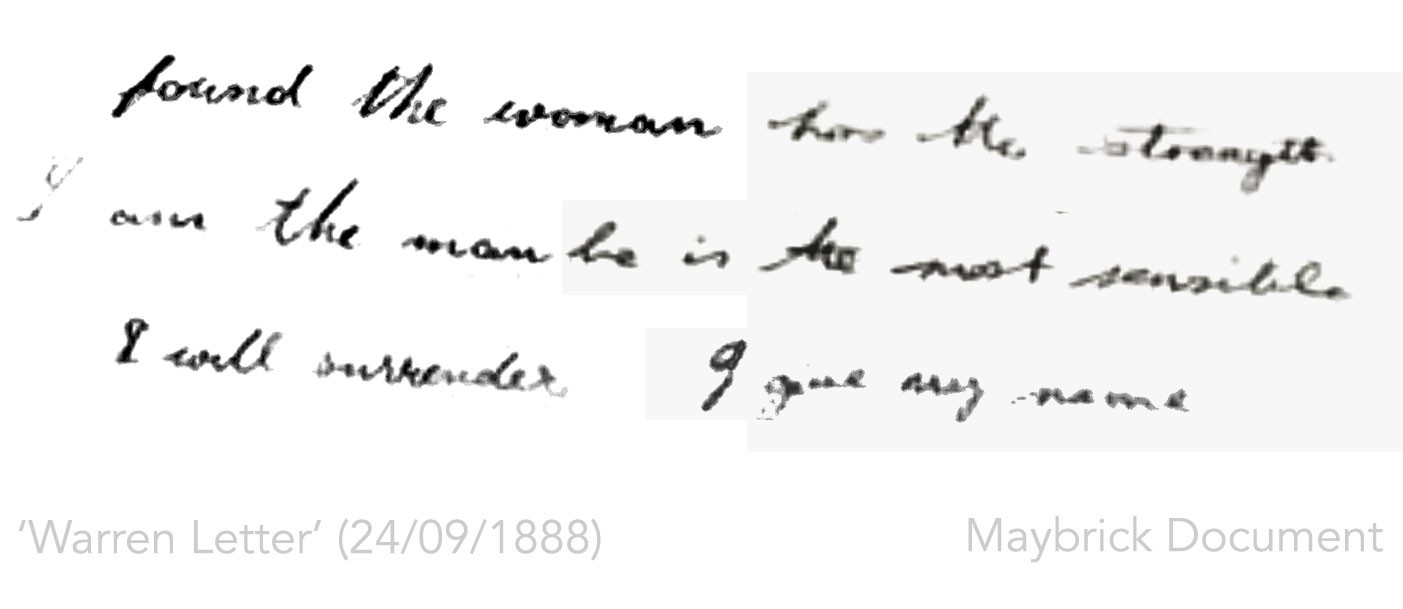 found the woman has the strength
I am the man he is the most sensible
I will surrender I give my name
‘Warren Letter’ (24/09/1888) Maybrick Document